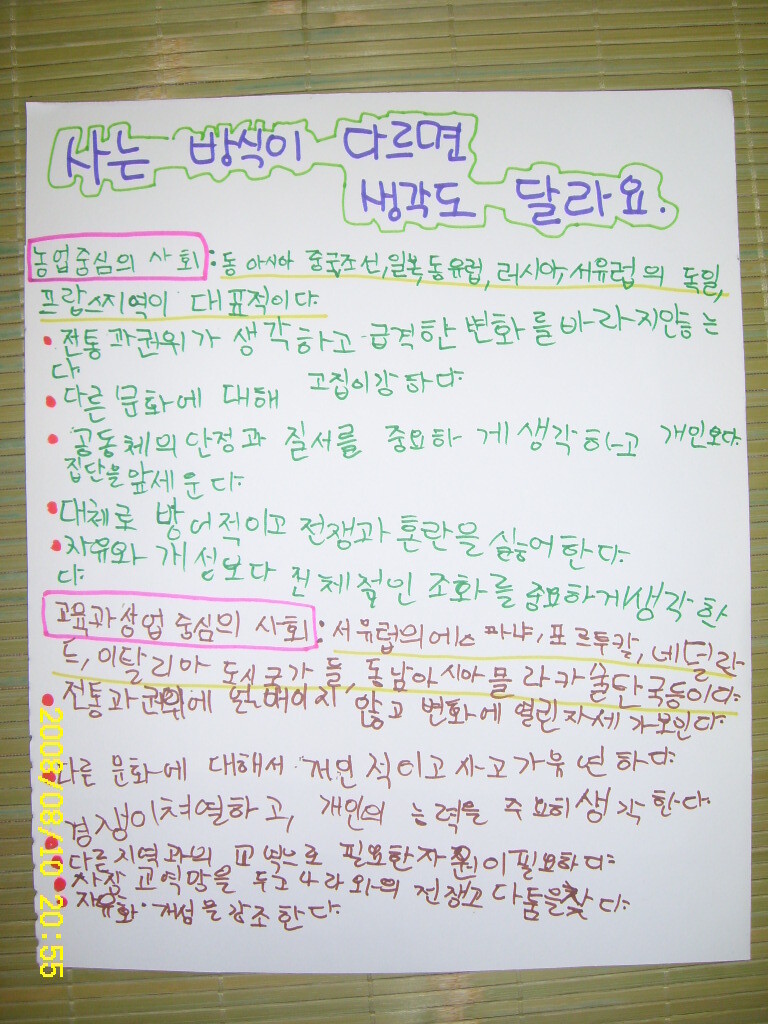 사는 방식이 다르면
생각도 달라요.
농업중심의 사회: 동 아시아 중국조선, 일본, 동유럽, 러시아, 서유럽의 독일,
프랍스지역이 대표적이다.
• 전통과권위가 생각하고 급격한 변화를바라지안놓는
다.
• 다른 문화에 대해 고집이강하다.
• 공동체의 안정과 질서를 중요하게생각하고 개인보다
집단을앞세운다.
• 대체로 방어적이고 전쟁과 혼란을 싫어한다.
• 자유와 개성보다 전체적인 조화를 중요하게생각한
다.
교육과상업 중심의 사회: 서유럽의에스파냐, 포르투칼, 네덜란
드, 이탈리아 도시국가들, 동남아시아믈라카술단국등이다.
• 전통과권위에 않고 변화에 열린자세가보인다.
• 다른 문화에 대해서 적이고 사고가유연하다.
경쟁이쳐열하고, 개인의 능력을 주요히생각한다.
• 다른지역과의 교역으로 필요한자원이필요하다.
• 교역망을 전쟁고다툼을찾다.
• 자유화·개성을강조한다.
2008/08/10 20:55